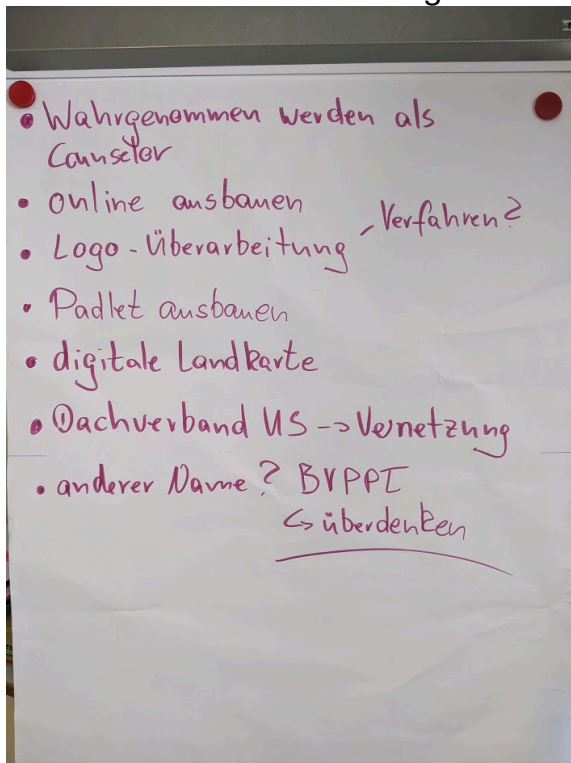 • Wahrgenommen werden als
Counselor
• online ausbauen
• Logo-Überarbeitung, Verfahren?
• Padlet ausbauen
• digitale Landkarte
• Dachverband US -> Vernetzung
• anderer Name? BVPPT
↳ überdenken